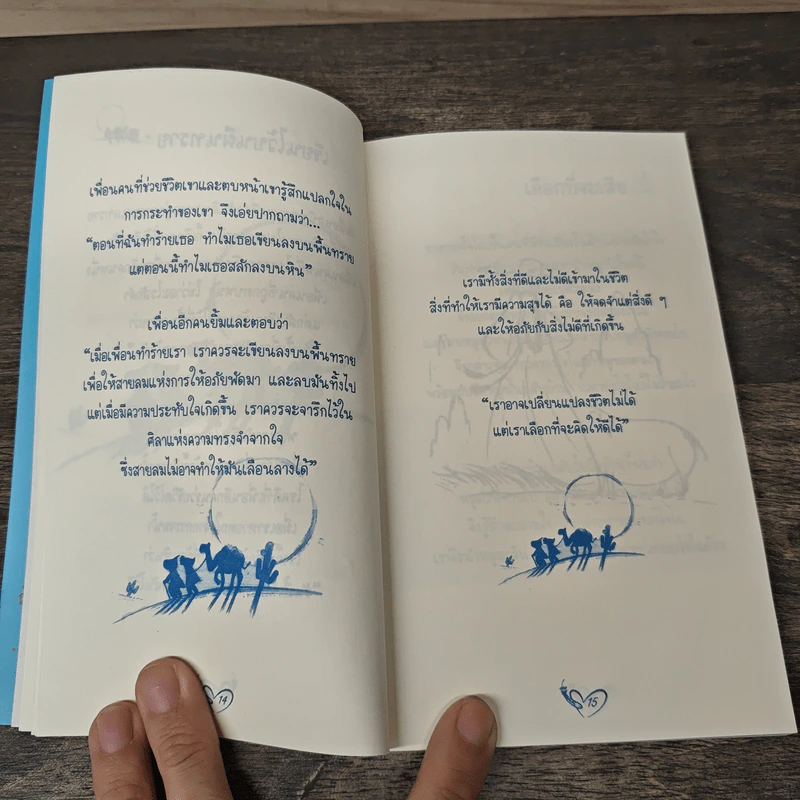 เพื่อนคนที่ช่วยชีวิตเขาและตบหน้าเขารู้สึกแปลกใจใน
การกระทำของเขา จึงเอ่ยปากถามว่า...
“ตอนที่ฉันทำร้ายเธอ ทำไมเธอเขียนลงบนพื้นทราย
แต่ตอนนี้ทำไมเธอสลักลงบนหิน”
เพื่อนอีกคนยิ้มและตอบว่า
“เมื่อเพื่อนทำร้ายเรา เราควรจะเขียนลงบนพื้นทราย
เพื่อให้สายลมแห่งการให้อภัยพัดมา และลบมันทิ้งไป
แต่เมื่อมีความประทับใจเกิดขึ้น เราควรจะจารึกไว้ใน
ศิลาแห่งความทรงจำจากใจ
ซึ่งสายลมไม่อาจทำให้มันเลือนลางได้”
14
เรามีทั้งสิ่งที่ดีและไม่ดีเข้ามาในชีวิต
สิ่งที่ทำให้เรามีความสุขได้ คือ ให้จดจำแต่สิ่งดี ๆ
และให้อภัยกับสิ่งไม่ดีที่เกิดขึ้น
“เราอาจเปลี่ยนแปลงชีวิตไม่ได้
แต่เราเลือกที่จะคิดให้ดีได้”
15